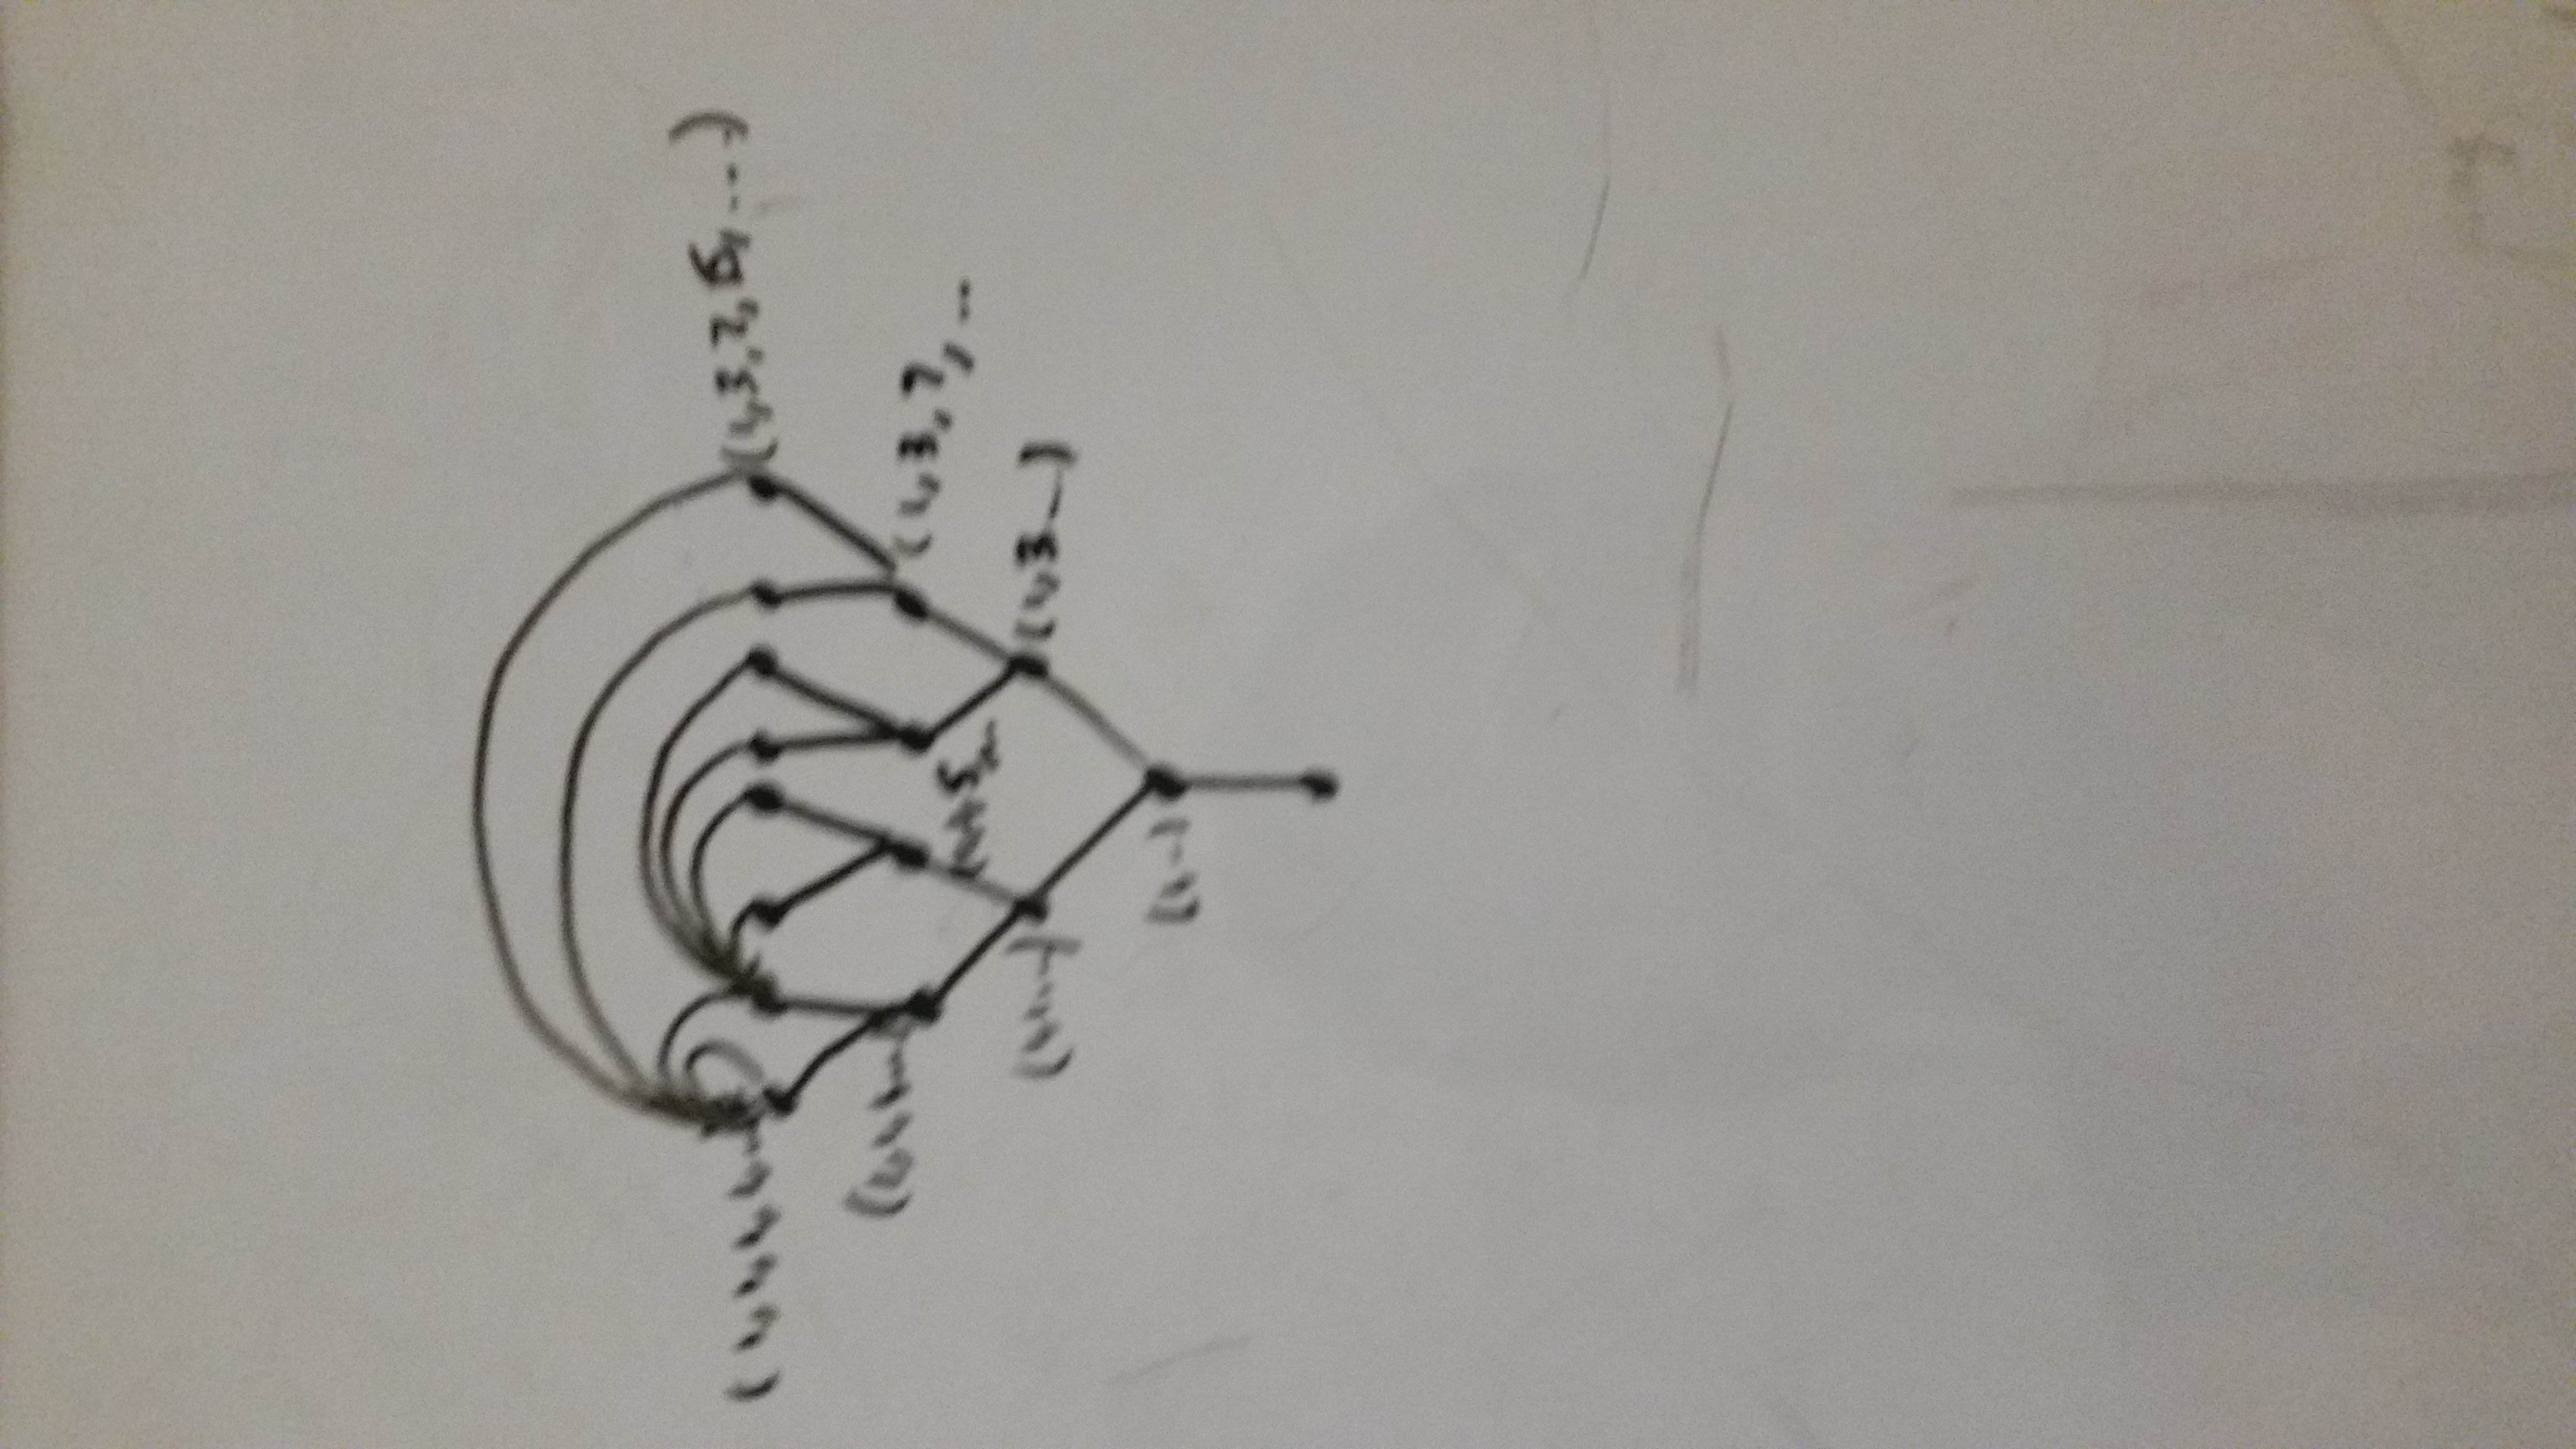 (1,1,1,1,... (1,3,7,5,...)
(1,1,1... (1,3,7,...
(1,1,5,...
(1,1,...) (1,3...)
(1,...)